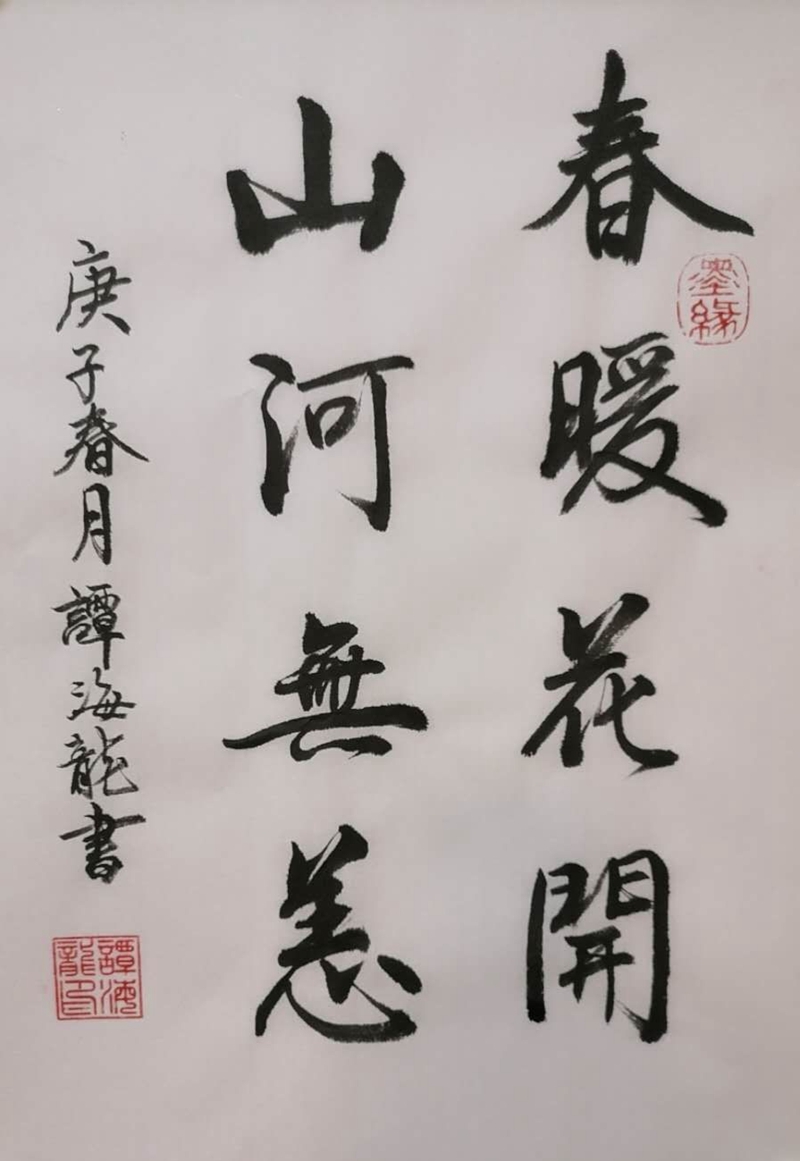 春暖花開
墨緣
山河無恙
庚子春月譚海龍書
譚海龍印